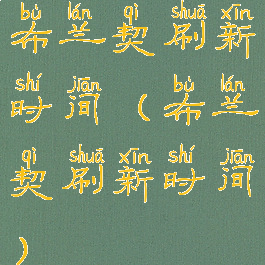 bù lán qì shuā xīn
布兰契刷新
shí jiān bù lán
时间(布兰
qì shuā xīn shí jiān
契刷新时间
)